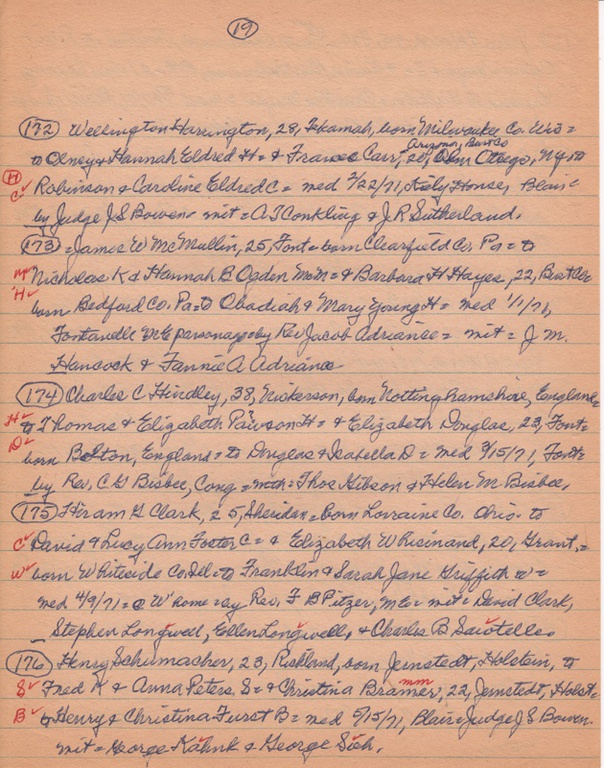 19
172 Wellington Harrington, 28, Tekamah, born Milwaukee Co. Wis =
Arizona, Burt Co
to Olney & Hannah Eldred H = & Frances Carr, 20, born Otsego, NY to
H
C Robinson & Caroline Eldred C = med 2/22/71, Kiely House, Blair =
by Judge J S Bowen = wit = A T Conkling & J. R Sutherland.
173 = James W McMullin, 25, Font = born Clearfield Co. Pa = to
Mc Nicholas K & Hannah B Ogden McM = & Barbara H Hayes, 22, Burt Co
H born Bedford Co. Pa = to Obadiah & Mary Young H = med 1/1/71,
Fontanelle ME personage by Rev Jacob Adriance = wit = J M.
Hancock & Fannie A Adriance
174 Charles C Hindley, 38, Nickerson, born Nottinghamshire, England
H to Thomas & Elizabeth Pawson H = & Elizabeth Douglas, 23, Font =
D born Bolton, England = to Douglas & Isabella D = med 3/15/71, Font =
by Rev. C G Bisbee, Cong = wit = Thos Gibson & Helen M Bisbee.
175 Hiram G Clark, 25, Sheridan = born Lorraine Co. Ohio = to
C David & Lucy Ann Foster C = & Elizabeth W 20, Grant, =
W born Whiteside Co. Ill = to Franklin & Sarah Jane Griffith W =
med 4/9/71 = @ W home = by Rev. F B Pitzer, ME = wit = David Clark,
Stephen Longwell, Ellen Longwell, & Charles B Sawtelle.
176 Henry Schumacher, 23, Richland, born Jernstedt, Holstein, to
mm
S Fred K & Anna Peters S = & Christina Bramer, 22, Jernstedt, Holst =
B to Henry & Christina Furst B = med 5/15/71, Blair = Judge J S Bowen.
wit = George Kahnk & George Sieh.